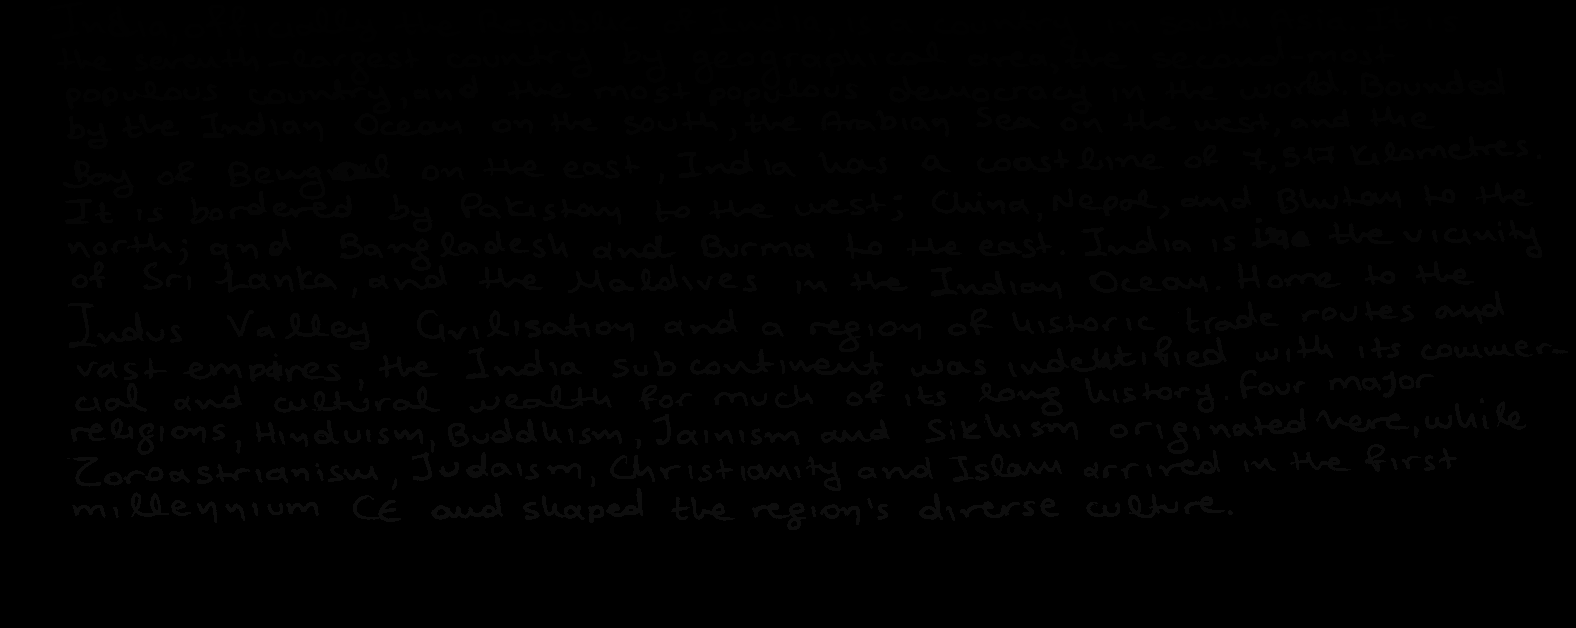 the seventh-largest country by geographical area, the second-most
populous country, and the most populous democracy in the world. Bounded
by the Indian Ocean on the south, the Arabian Sea on the west, and the
Bay of Bengal on the east, India has a coastline of 7,517 kilometres.
It is bordered by Pakistan to the west; China, Nepal, and Bhutan to the
north; and Bangladesh and Burma to the east. India is the vicinity
of Sri Lanka, and the Maldives in the Indian Ocean. Home to the
Indus Valley Civilisation and a region of historic trade routes and
vast empires, the India subcontinent was indentified with its commer-
cial and cultural wealth for much of its long history. Four major
religions, Hinduism, Buddhism, Jainism and Sikhism originated here, while
Zoroastrianism, Judaism, Christianity and Islam arrived in the first
millennium CE and shaped the region's diverse culture.